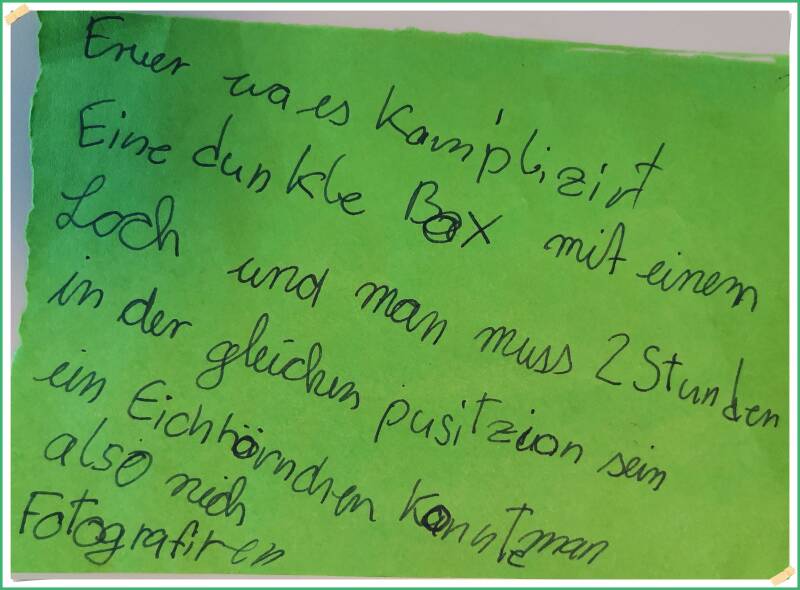 Eruer wa es Kamplizirt
Eine dunkle Box mit einem
Loch und man muss 2 Stunden
in der gleichen pusitzion sein
ein Eichhörnchen konntze man
also nich
Fotografiren